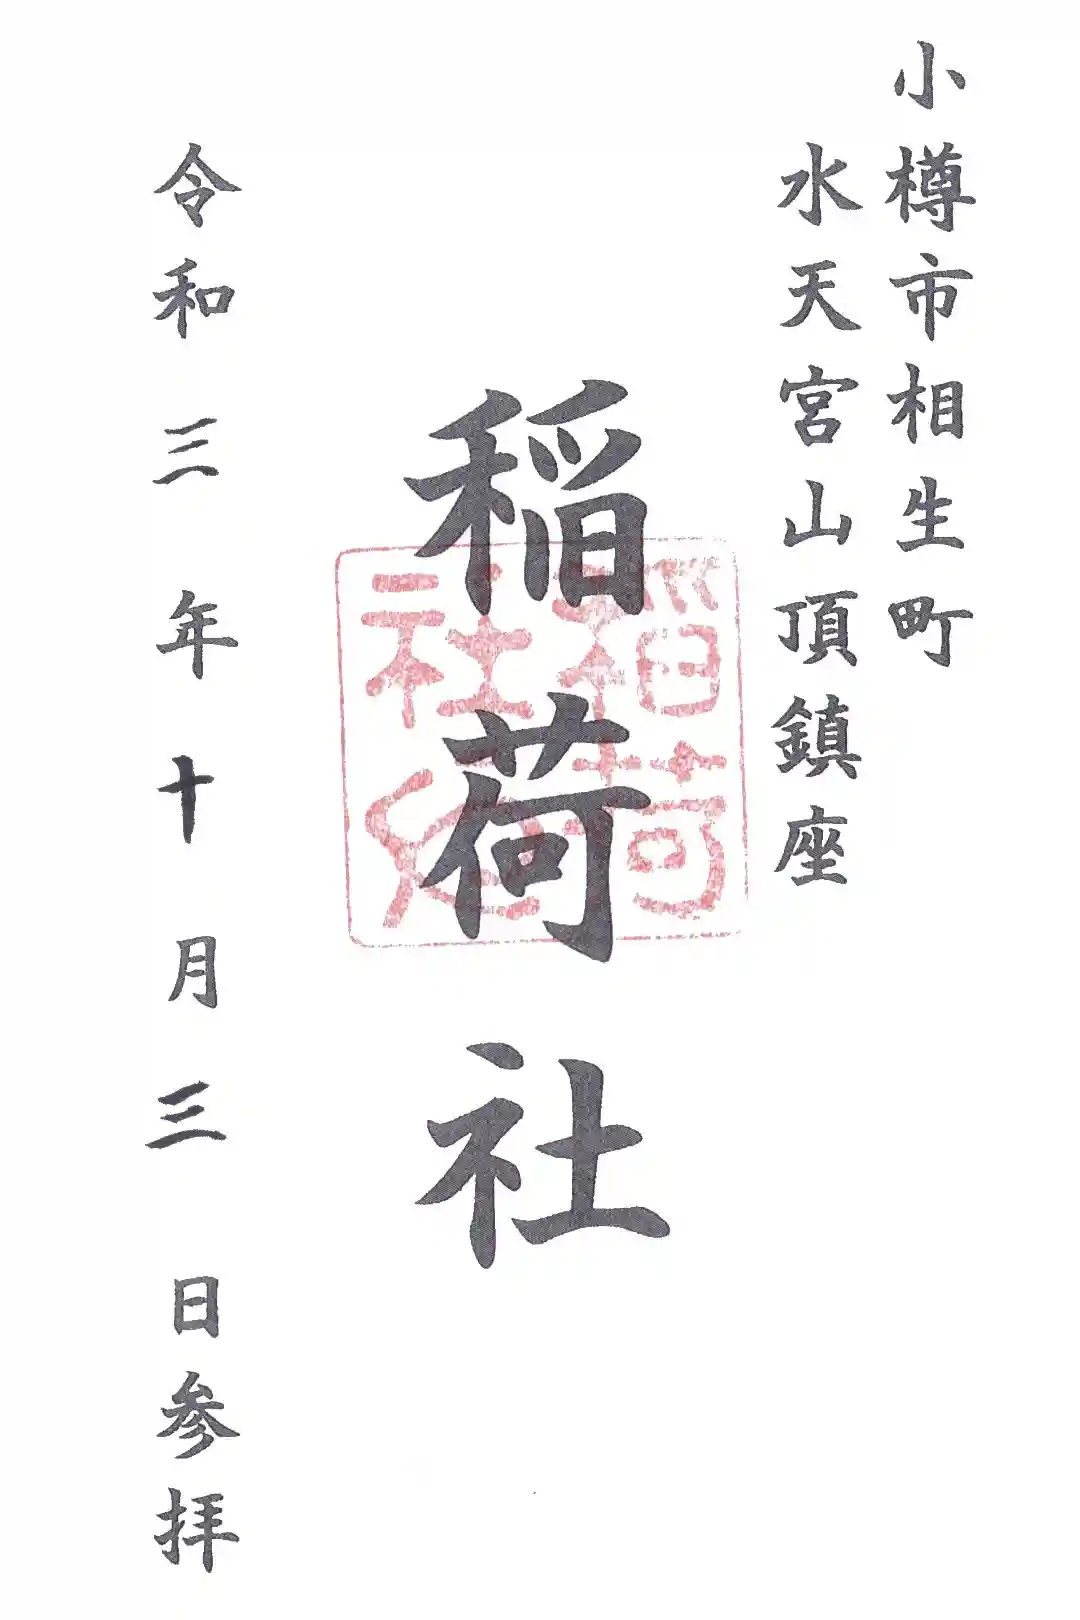 小樽市相生町
水天宮山頂鎮座
稲荷社
稲荷
社印
令和三年十月三日参拝